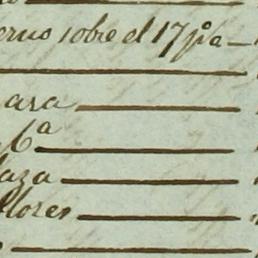 erno sobre el 17 pª
asa
6ª
laza
flores